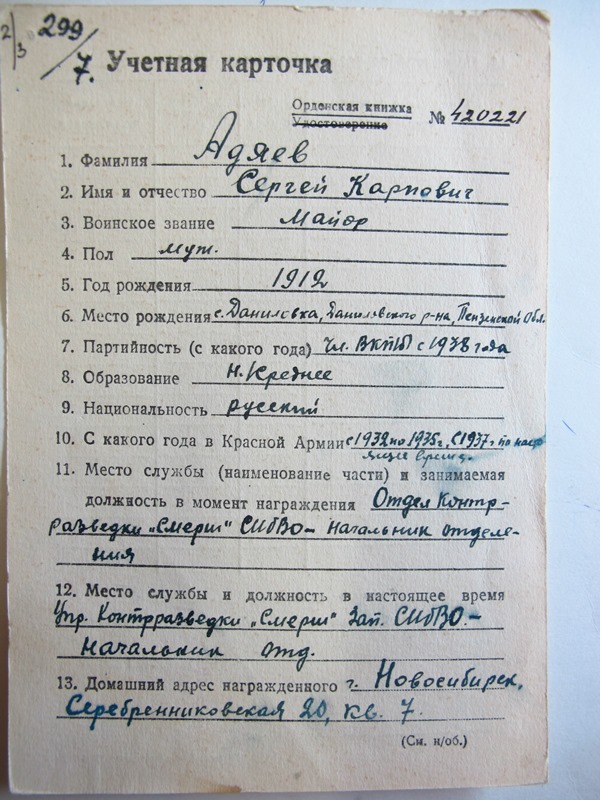 2/3 299/7.
Учетная карточка
Орденская книжка
Удостоверение № 420221
1. Фамилия Адяев
2. Имя и отчество Сергей Карпович
3. Воинское звание Майор
4. Пол муж.
5. Год рождения 1912
6. Место рождения с. Даниловка, Даниловского р-на, Пензенской Обл.
7. Партийность (с какого года) Чл. ВКП/б/ с 1938 года
8. Образование н. среднее
9. Национальность русский
10. С какого года в Красной Армии с 1932 по 1935г, с 1937г по насто
ящие время.
11. Место службы (наименование части) и занимаемая
должность в момент награждения Отдел Контр-
разведки „Смерш" СИБВО – Начальник отделе-
ния
12. Место службы и должность в настоящее время
Упр. Контрразведки „Смерш" Зап. СИБВО. –
Начальник отд.
13. Домашний адрес награжденного г. Новосибирск,
Серебренниковская 20, кв. 7.
(См. н/об.)